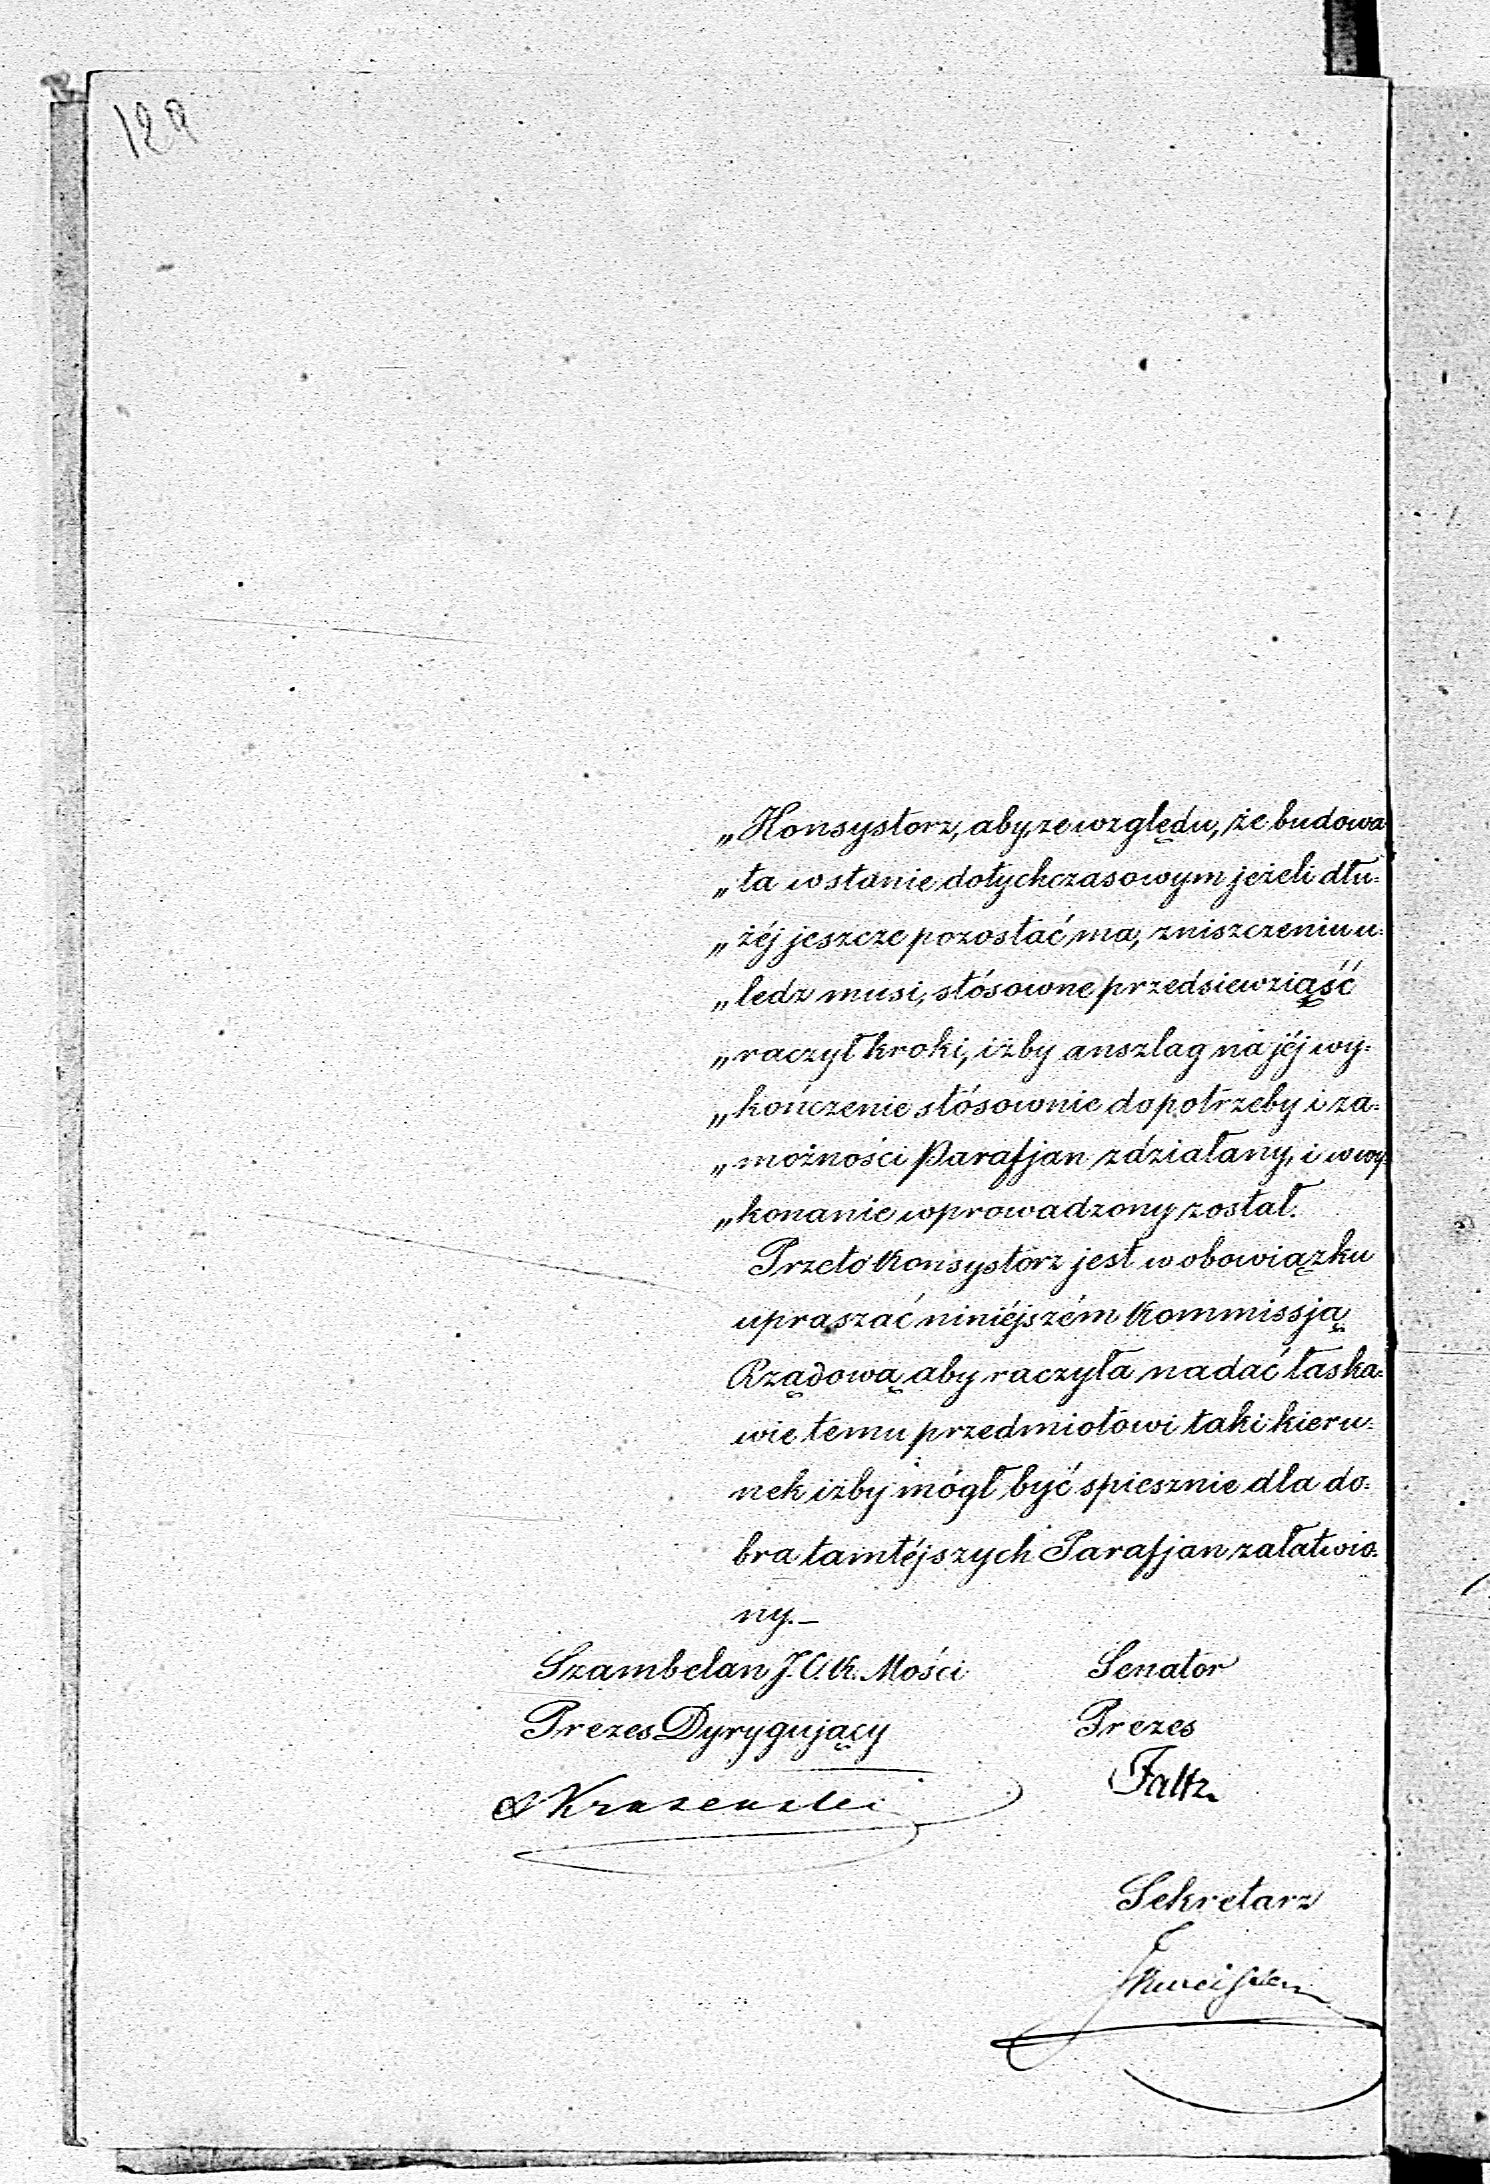 129
„Konsystorz, aby, ze względu, że budowa
„ta w stanie dotychczasowym jeżeli dłu=
„żéj jeszcze pozostać ma, zniszczeniu u=
„ledz musi, stósowne przedsiewziąść
„raczył kroki, iżby anszlag na jéj wy=
„kończenie stósownie do potrzeby i za=
„możności Parafjan zdziałany, i w wy=
„konanie wprowadzony został.
Przeto Konsystorz jest w obowiązku
upraszać niniéjszém Kommissją
Rządową aby raczyła nadać łaska=
wie temu przedmiotowi taki kieru=
nek iżby mógł być spiesznie dla do=
bra tamtéjszych Parafjan załatwio=
ny.—
Szambelan J. C. K. Mości
Prezes Dyrygujący
Senator
Prezes
Faltz
Sekretarz